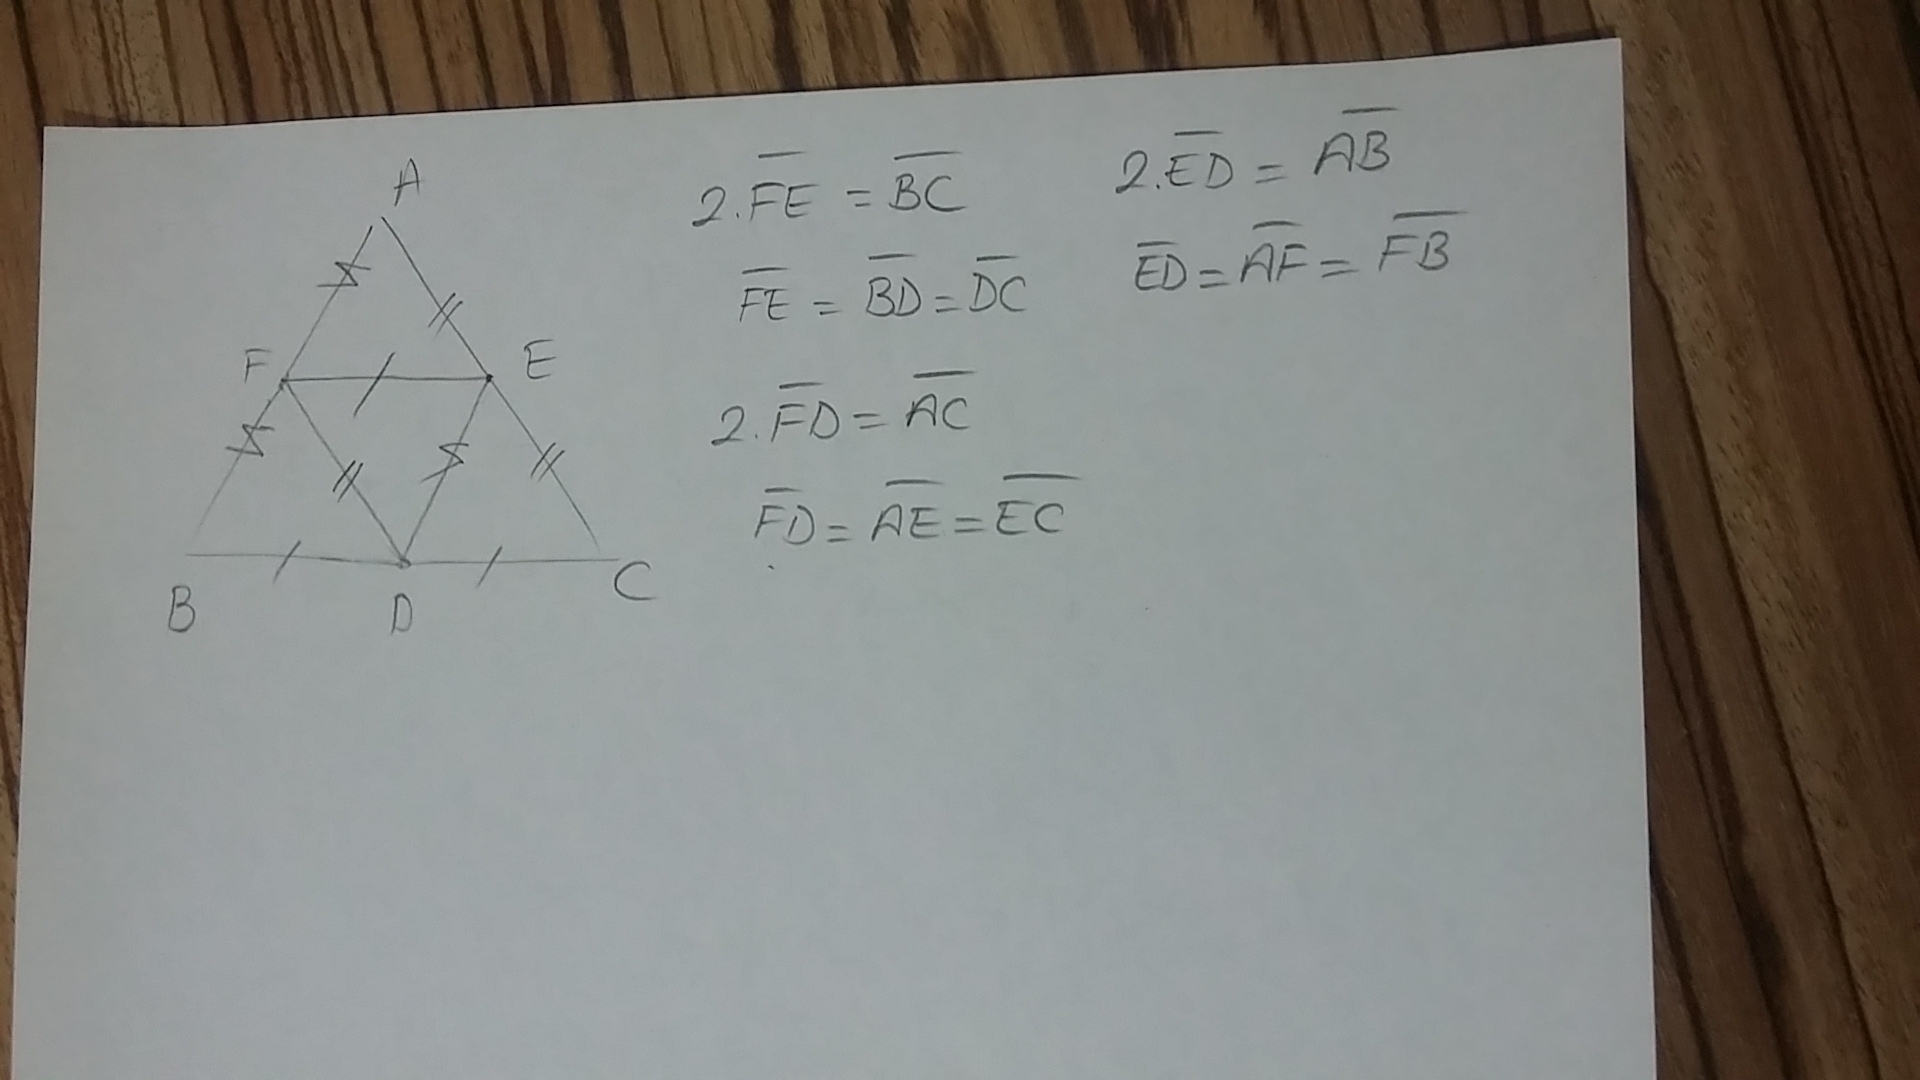 A
F
E
B
D
C
2.F̅E̅ = B̅C̅
F̅E̅ = B̅D̅ = D̅C̅
2.F̅D̅ = A̅C̅
F̅D̅ = A̅E̅ = E̅C̅
2.E̅D̅ = A̅B̅
E̅D̅ = A̅F̅ = F̅B̅